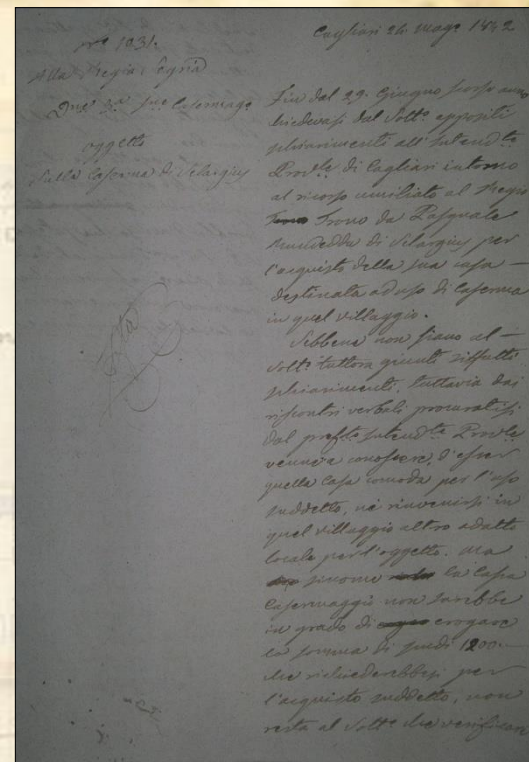 N° 1031.
Alla Regia Segria
Div. 3.a Casermaggi
oggetto
Sulla Caserma di Selargius
Cagliari 26. Magg. 1842
Fin dal 29. Giugno scorso anno
chiedevasi dal Sott.o appositi
schiarimenti all'Intend.te
Prov.le di Cagliari intorno
al ricorso umiliato al Regio
Trono da Pasquale
di Selargius per
l'acquisto della sua casa
destinata ad uso di Caserma
in quel villaggio.
Sebbene non siano al
Sott.o tuttora giunti siffatti
schiarimenti, tuttavia dai
riscontri verbali procuratisi
dal pref.to Intend.te Prov.le
venne a conoscere, d'esser
quella Casa comoda per l'uso
suddetto, nè rinvenirsi in
quel villaggio altro adatto
locale per l'oggetto. Ma
siccome la Cassa
Casermaggio non sarebbe
in grado di erogare
la somma di scudi 1200.
che richiederebbesi per
l'acquisto suddetto, non
resta al Sott.o che verificare